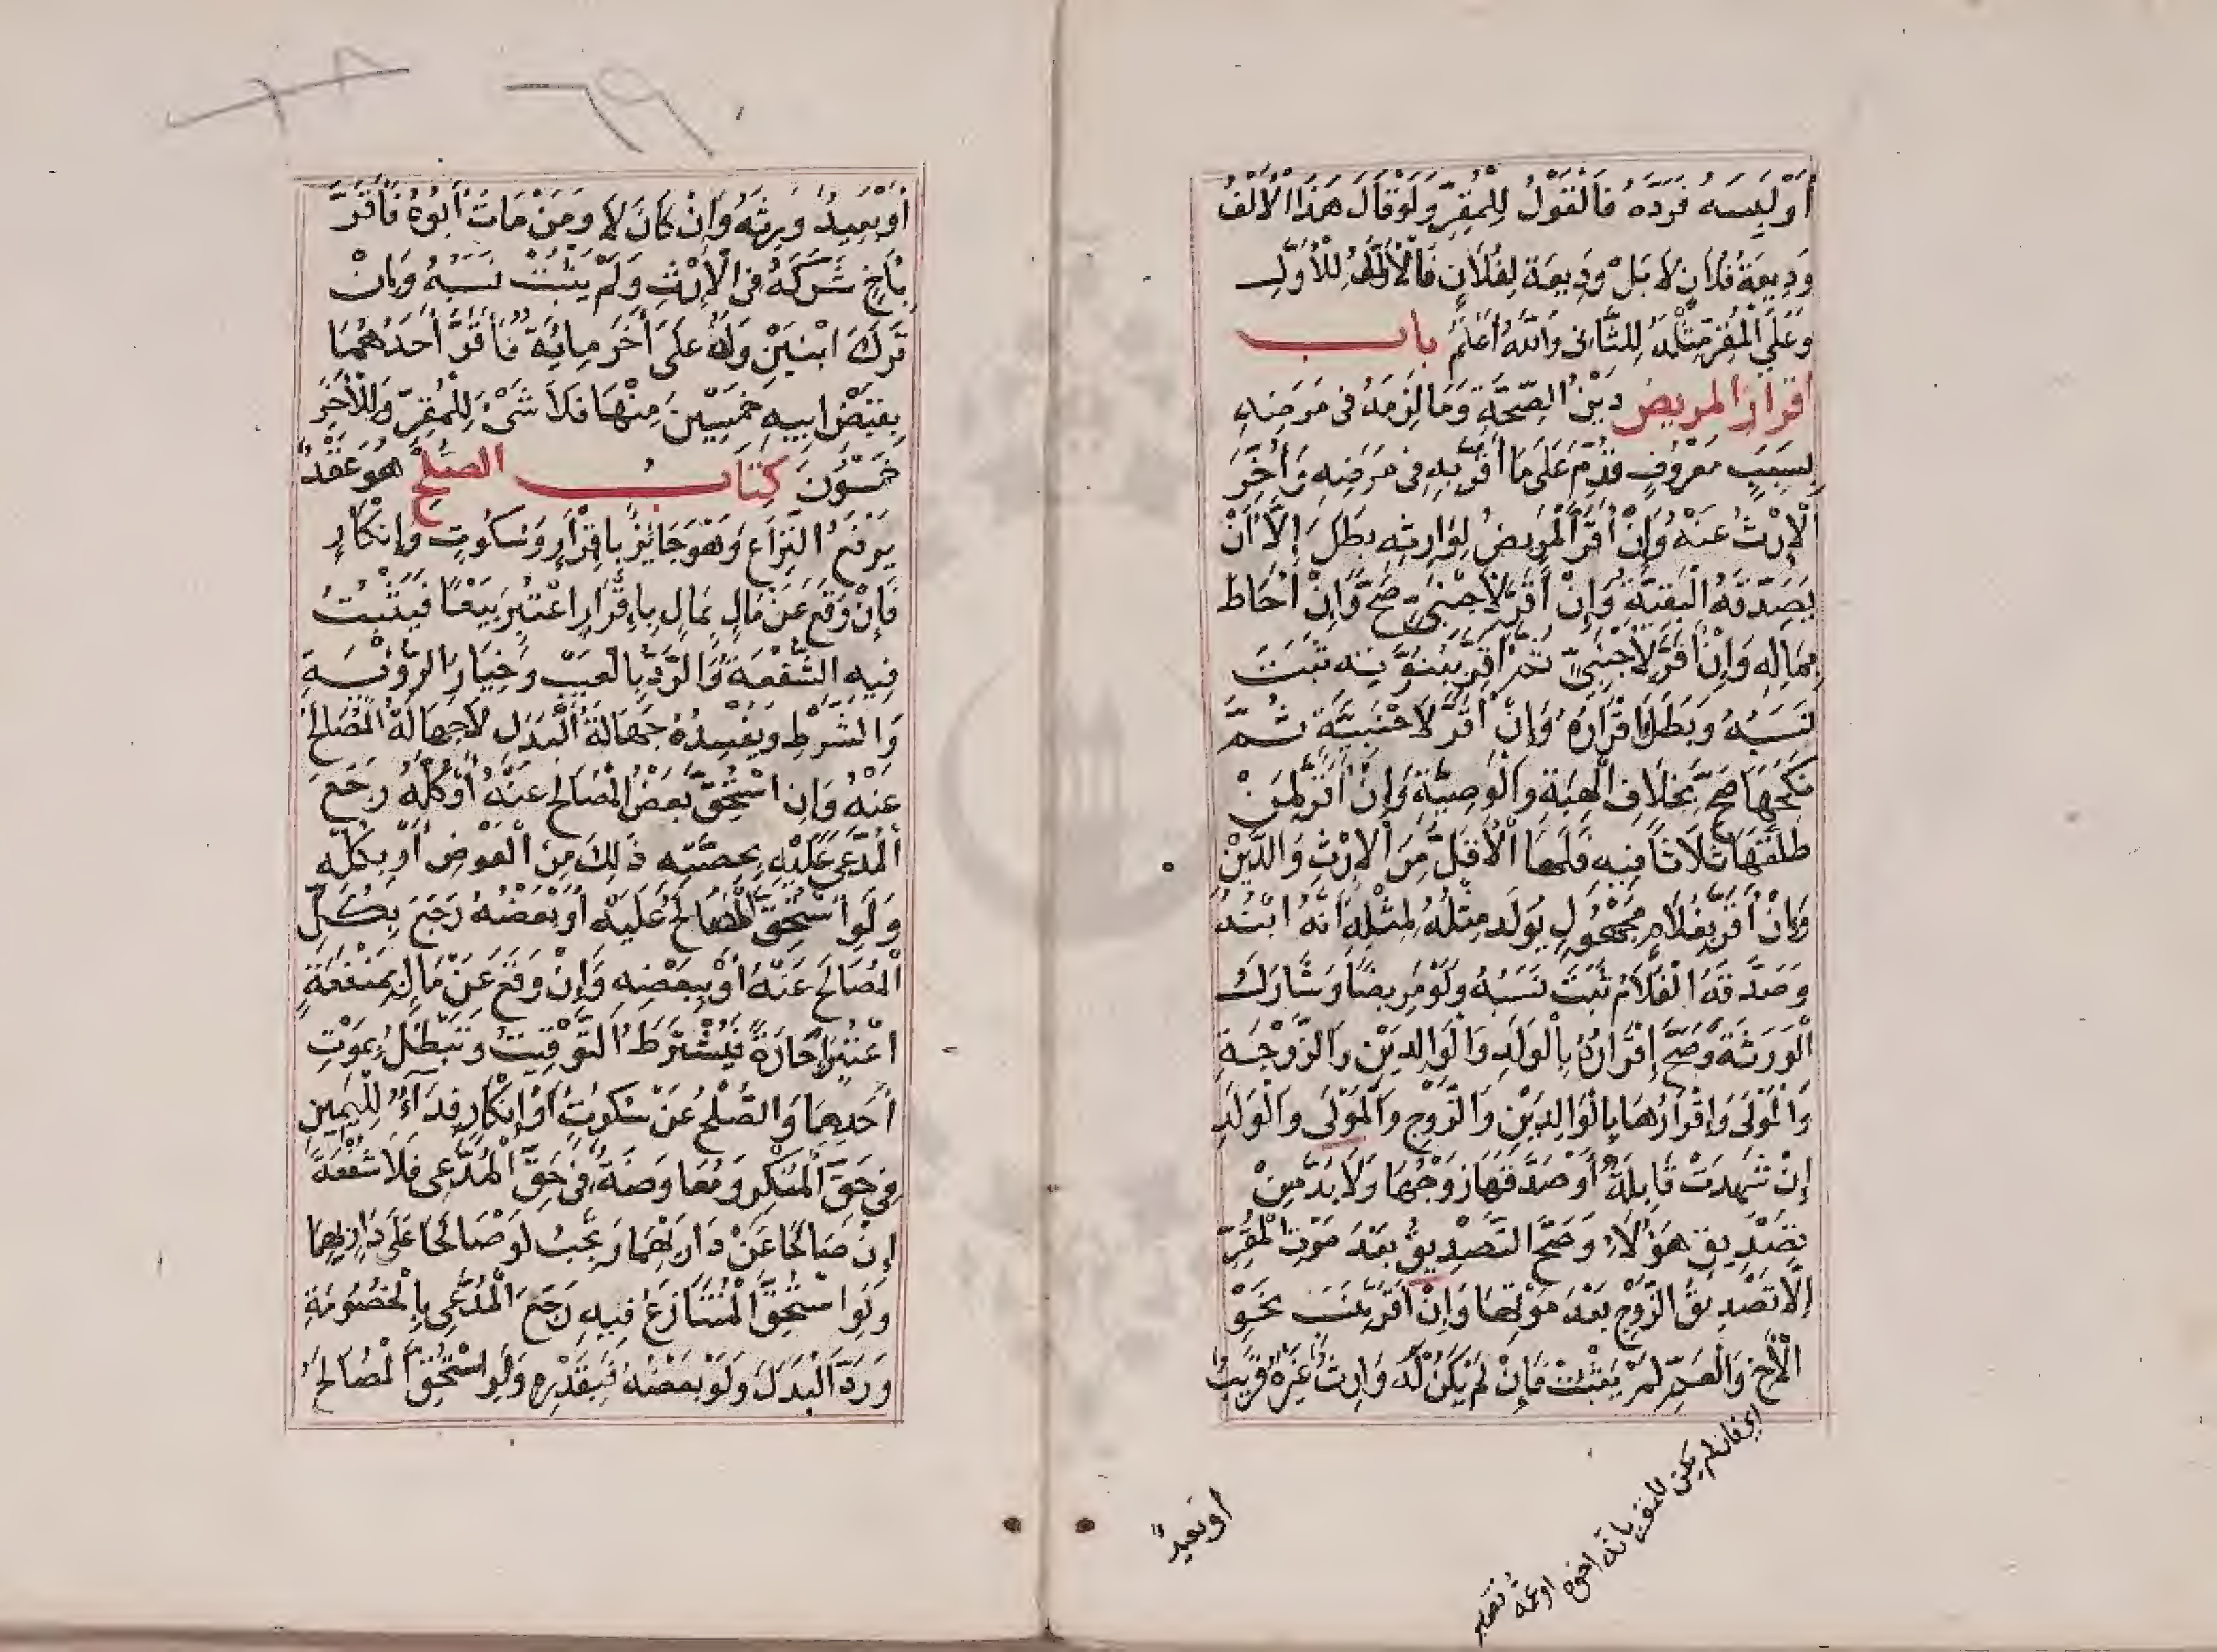 أَوْ لَبِسَهُ فَرَدَّهُ فَالْقَوْلُ لِلْمُقِرِّ وَلَوْ قَالَ هَذَا الْأَلْفُ
وَدِيعَةُ فُلَانٍ لَا بَلْ وَدِيعَة لِفُلَانٍ فَالْأَلْفُ لِلْأَوَّلِ
وَعَلَى الْمُقِرِّ مِثْلُهُ لِلثَّانِي وَاللَّهُ أَعْلَمُ باب
اقرار المريض دَيْنُ الصِّحَّةِ وَمَا لَزِمَهُ فِي مَرَضِهِ
بِسَبَبٍ مَعْرُوفٍ قُدِّمَ عَلَى مَا أَقَرَّ بِهِ فِي مَرَضِهِ وَأُخِّرَ
الْإِرْثُ عَنْهُ وَإِنْ أَقَرَّ الْمَرِيضُ لِوَارِثِهِ بَطَلَ إِلَّا أَنْ
يُصَدِّقَهُ الْبَقِيَّةُ وَإِنْ أَقَرَّ لِأَجْنَبِيٍّ صَحَّ وَإِنْ أَحَاطَ
بِمَالِهِ وَإِنْ أَقَرَّ لِأَجْنَبِيٍّ ثُمَّ أَقَرَّ بِبُنُوَّتِهِ ثَبَتَ
نَسَبُهُ وَبَطَلَ إِقْرَارُهُ وَإِنْ أَقَرَّ لِأَجْنَبِيَّةٍ ثُمَّ
نَكَحَهَا صَحَّ بِخِلَافِ الْهِبَةِ وَالْوَصِيَّةِ وَإِنْ أَقَرَّ لِمَنْ
طَلَّقَهَا ثَلَاثًا فِيهِ فَلَهَا الْأَقَلُّ مِنَ الْإِرْثِ وَالدَّيْنِ
وَإِنْ أَقَرَّ بِغُلَامٍ مَجْهُولٍ يُولَدُ مِثْلُهُ لِمِثْلِهِ أَنَّهُ ابْنُهُ
وَصَدَّقَهُ الْغُلَامُ ثَبَتَ نَسَبُهُ وَلَوْ مَرِيضًا وَشَارَكَ
الْوَرَثَةَ وَصَحَّ إِقْرَارُهُ بِالْوَلَدِ وَالْوَالِدَيْنِ وَالزَّوْجَةِ
وَالْمَوْلَى وَإِقْرَارُهَا بِالْوَالِدَيْنِ وَالزَّوْجِ وَالْمَوْلَى وَالْوَلَدِ
إِنْ شَهِدَتْ قَابِلَةٌ أَوْ صَدَّقَهَا زَوْجُهَا وَلَا بُدَّ مِنْ
تَصْدِيقِ هَؤُلَاءِ وَصَحَّ التَّصْدِيقُ بَعْدَ مَوْتِ الْمُقِرِّ
إِلَّا تَصْدِيقُ الزَّوْجِ بَعْدَ مَوْتِهَا وَإِنْ أَقَرَّ بِنَسَبِ نَحْوِ
الْأَخِ وَالْعَمِّ لَمْ يَثْبُتْ فَإِنْ لَمْ يَكُنْ لَهُ وَارِثٌ غَيْرُهُ قَرِيبٌ
اى فان لم يكن للمقر بانه اخوه او عمه
أو بعيدٌ
أَوْ بَعِيدٌ وَرِثَهُ وَإِنْ كَانَ لَا وَمَنْ مَاتَ أَبُوهُ فَأَقَرَّ
بِأَخٍ شَرَكَهُ فِي الْإِرْثِ وَلَمْ يَثْبُتْ نَسَبُهُ وَإِنْ
تَرَكَ ابْنَيْنِ وَلَهُ عَلَى آخَرَ مِائَةٌ فَأَقَرَّ أَحَدُهُمَا
بِقَبْضِ أَبِيهِ خَمْسِينَ مِنْهَا فَلَا شَيْءَ لِلْمُقِرِّ وَلِلْآخَرِ
خَمْسُونَ كتاب الصلح هُوَ عَقْدٌ
يَرْفَعُ النِّزَاعَ وَهُوَ جَائِزٌ بِإِقْرَارٍ وَسُكُوتٍ وَإِنْكَارٍ
فَإِنْ وَقَعَ عَنْ مَالٍ بِمَالٍ بِإِقْرَارٍ اعْتُبِرَ بَيْعًا فَيَثْبُتُ
فِيهِ الشُّفْعَةُ وَالرَّدُّ بِالْعَيْبِ وَخِيَارُ الرُّؤْيَةِ
وَالشَّرْطِ وَيُفْسِدُهُ جَهَالَةُ الْبَدَلِ لَا جَهَالَةُ الْمُصَالَحِ
عَنْهُ وَإِنِ اسْتُحِقَّ بَعْضُ الْمُصَالَحِ عَنْهُ أَوْ كُلُّهُ رَجَعَ
الْمُدَّعَى عَلَيْهِ بِحِصَّتِهِ ذَلِكَ مِنَ الْعِوَضِ أَوْ بِكُلِّهِ
وَلَوِ اسْتُحِقَّ الْمُصَالَحُ عَلَيْهِ أَوْ بَعْضُهُ رَجَعَ بِكُلِّ
الْمُصَالَحِ عَنْهُ أَوْ بِبَعْضِهِ وَإِنْ وَقَعَ عَنْ مَالٍ بِمَنْفَعَةٍ
اعْتُبِرَ إِجَارَةً فَيُشْتَرَطُ التَّوْقِيتُ وَتَبْطُلُ بِمَوْتِ
أَحَدِهِمَا وَالصُّلْحُ عَنْ سُكُوتٍ أَوْ إِنْكَارٍ فِدَاءٌ لِلْيَمِينِ
فِي حَقِّ الْمُنْكِرِ وَمُعَاوَضَةٌ فِي حَقِّ الْمُدَّعِي فَلَا شُفْعَةَ
إِنْ صَالَحَا عَنْ دَارٍ بِهِمَا وَتَجِبُ لَوْ صَالَحَا عَلَى دَارٍ بِهِمَا
وَلَوِ اسْتُحِقَّ الْمُتَنَازَعُ فِيهِ رَجَعَ الْمُدَّعِي بِالْخُصُومَةِ
وَرَدَّ الْبَدَلَ وَلَوْ بَعْضُهُ فَبِقَدْرِهِ وَلَوِ اسْتُحِقَّ الْمُصَالَحُ